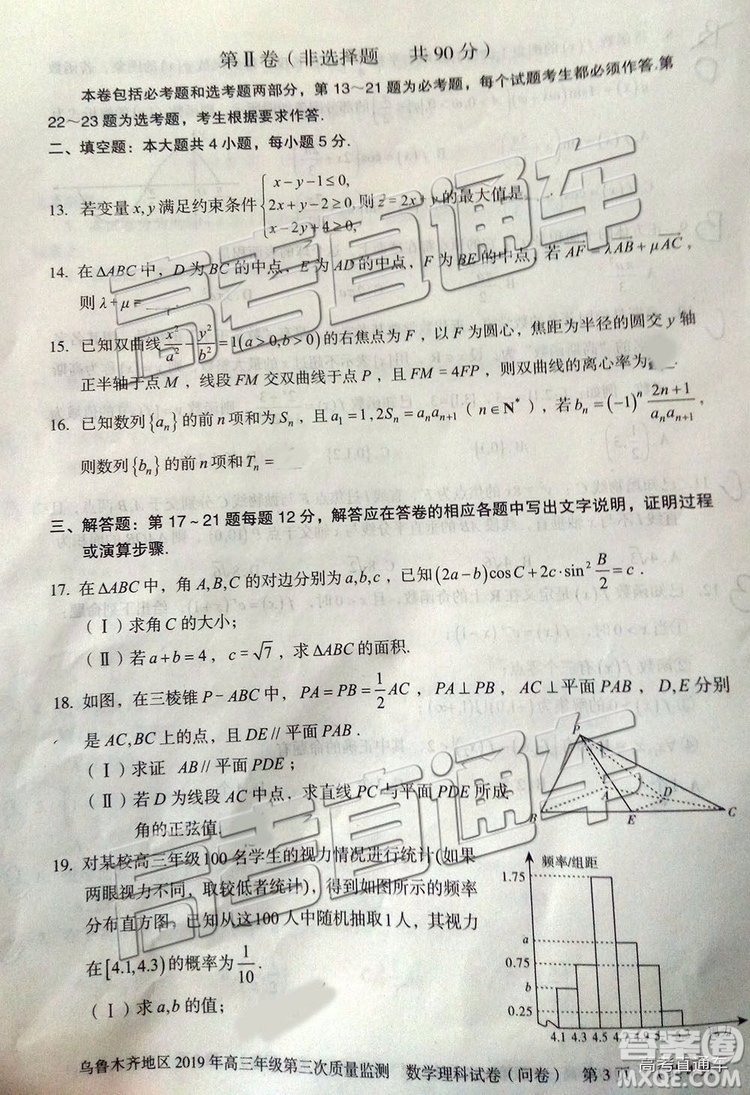 第Ⅱ卷(非选择题 共90分)
本卷包括必考题和选考题两部分,第13~21题为必考题,每个试题考生都必须作答.第
22~23题为选考题,考生根据要求作答.
二、填空题:本大题共4小题,每小题5分.
13. 若变量x,y满足约束条件{x-y-1≤0, 2x+y-2≥0, x-2y+4≥0, 则z=2x+y的最大值是
14. 在ΔABC中,D为BC的中点,E为AD的中点,F为BE的中点,若AF=λAB+μAC,
则λ+μ=
15. 已知双曲线x²/a²-y²/b²=1(a>0,b>0)的右焦点为F,以F为圆心,焦距为半径的圆交y轴
正半轴于点M,线段FM交双曲线于点P,且FM=4FP,则双曲线的离心率为
16. 已知数列{aₙ}的前n项和为Sₙ,且a₁=1,2Sₙ=aₙaₙ₊₁(n∈N*),若bₙ=(-1)ⁿ(2n+1)/(aₙaₙ₊₁),
则数列{bₙ}的前n项和Tₙ=
三、解答题:第17~21题每题12分,解答应在答卷的相应各题中写出文字说明,证明过程
或演算步骤.
17. 在ΔABC中,角A,B,C的对边分别为a,b,c,已知(2a-b)cosC+2c·sin²(B/2)=c.
(Ⅰ)求角C的大小;
(Ⅱ)若a+b=4,c=√7,求ΔABC的面积.
18. 如图,在三棱锥P-ABC中,PA=PB=1/2AC,PA⊥PB,AC⊥平面PAB,D,E分别
是AC,BC上的点,且DE//平面PAB.
(Ⅰ)求证 AB//平面PDE;
(Ⅱ)若D为线段AC中点,求直线PC与平面PDE所成
角的正弦值.
P
A
D
B
E
C
19. 对某校高三年级100名学生的视力情况进行统计(如果
两眼视力不同,取较低者统计),得到如图所示的频率
分布直方图,已知从这100人中随机抽取1人,其视力
在[4.1,4.3)的概率为1/10.
(Ⅰ)求a,b的值;
频率/组距
1.75
a
0.75
b
0.25
4.1 4.3 4.5 4.7 4.9 5.1
乌鲁木齐地区2019年高三年级第三次质量监测 数学理科试卷(问卷) 第3页
高考直通车
高考直通车
高考直通车